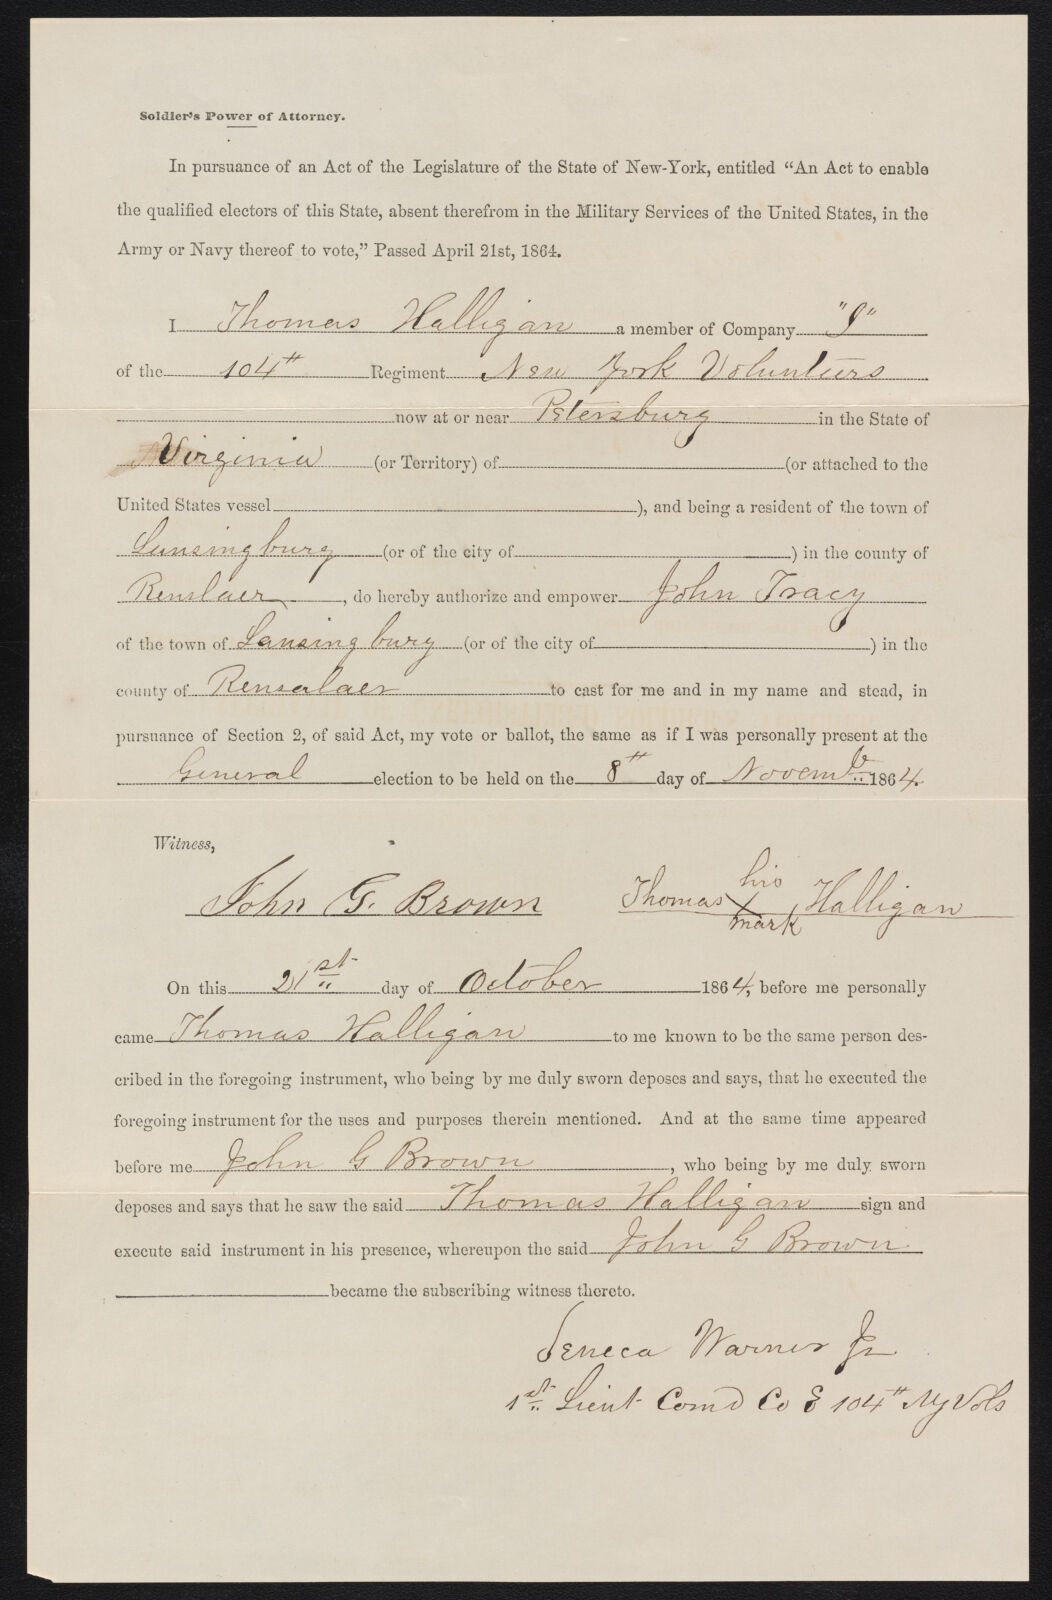 Soldier's Power of Attorney.
In pursuance of an Act of the Legislature of the State of New-York, entitled “An Act to enable
the qualified electors of this State, absent therefrom in the Military Services of the United States, in the
Army or Navy thereof to vote,” Passed April 21st, 1864.
I Thomas Halligan a member of Company "I"
of the 104th Regiment New York Volunteers
now at or near Petersburg in the State of
Virginia (or Territory) of (or attached to the
United States vessel ), and being a resident of the town of
Lansingburg (or of the city of ) in the county of
Renslaer, do hereby authorize and empower John Tracy
of the town of Lansingburg (or of the city of ) in the
county of Rensalaer to cast for me and in my name and stead, in
pursuance of Section 2, of said Act, my vote or ballot, the same as if I was personally present at the
General election to be held on the 8th day of Novembr 1864.
Witness,
John G. Brown Thomas his X mark Halligan
On this 21st day of October 1864, before me personally
came Thomas Halligan to me known to be the same person des-
cribed in the foregoing instrument, who being by me duly sworn deposes and says, that he executed the
foregoing instrument for the uses and purposes therein mentioned. And at the same time appeared
before me John G Brown, who being by me duly sworn
deposes and says that he saw the said Thomas Halligan sign and
execute said instrument in his presence, whereupon the said John G Brown
became the subscribing witness thereto.
Seneca Warner Jr
1st Lieut Comd Co E 104th NY Vols